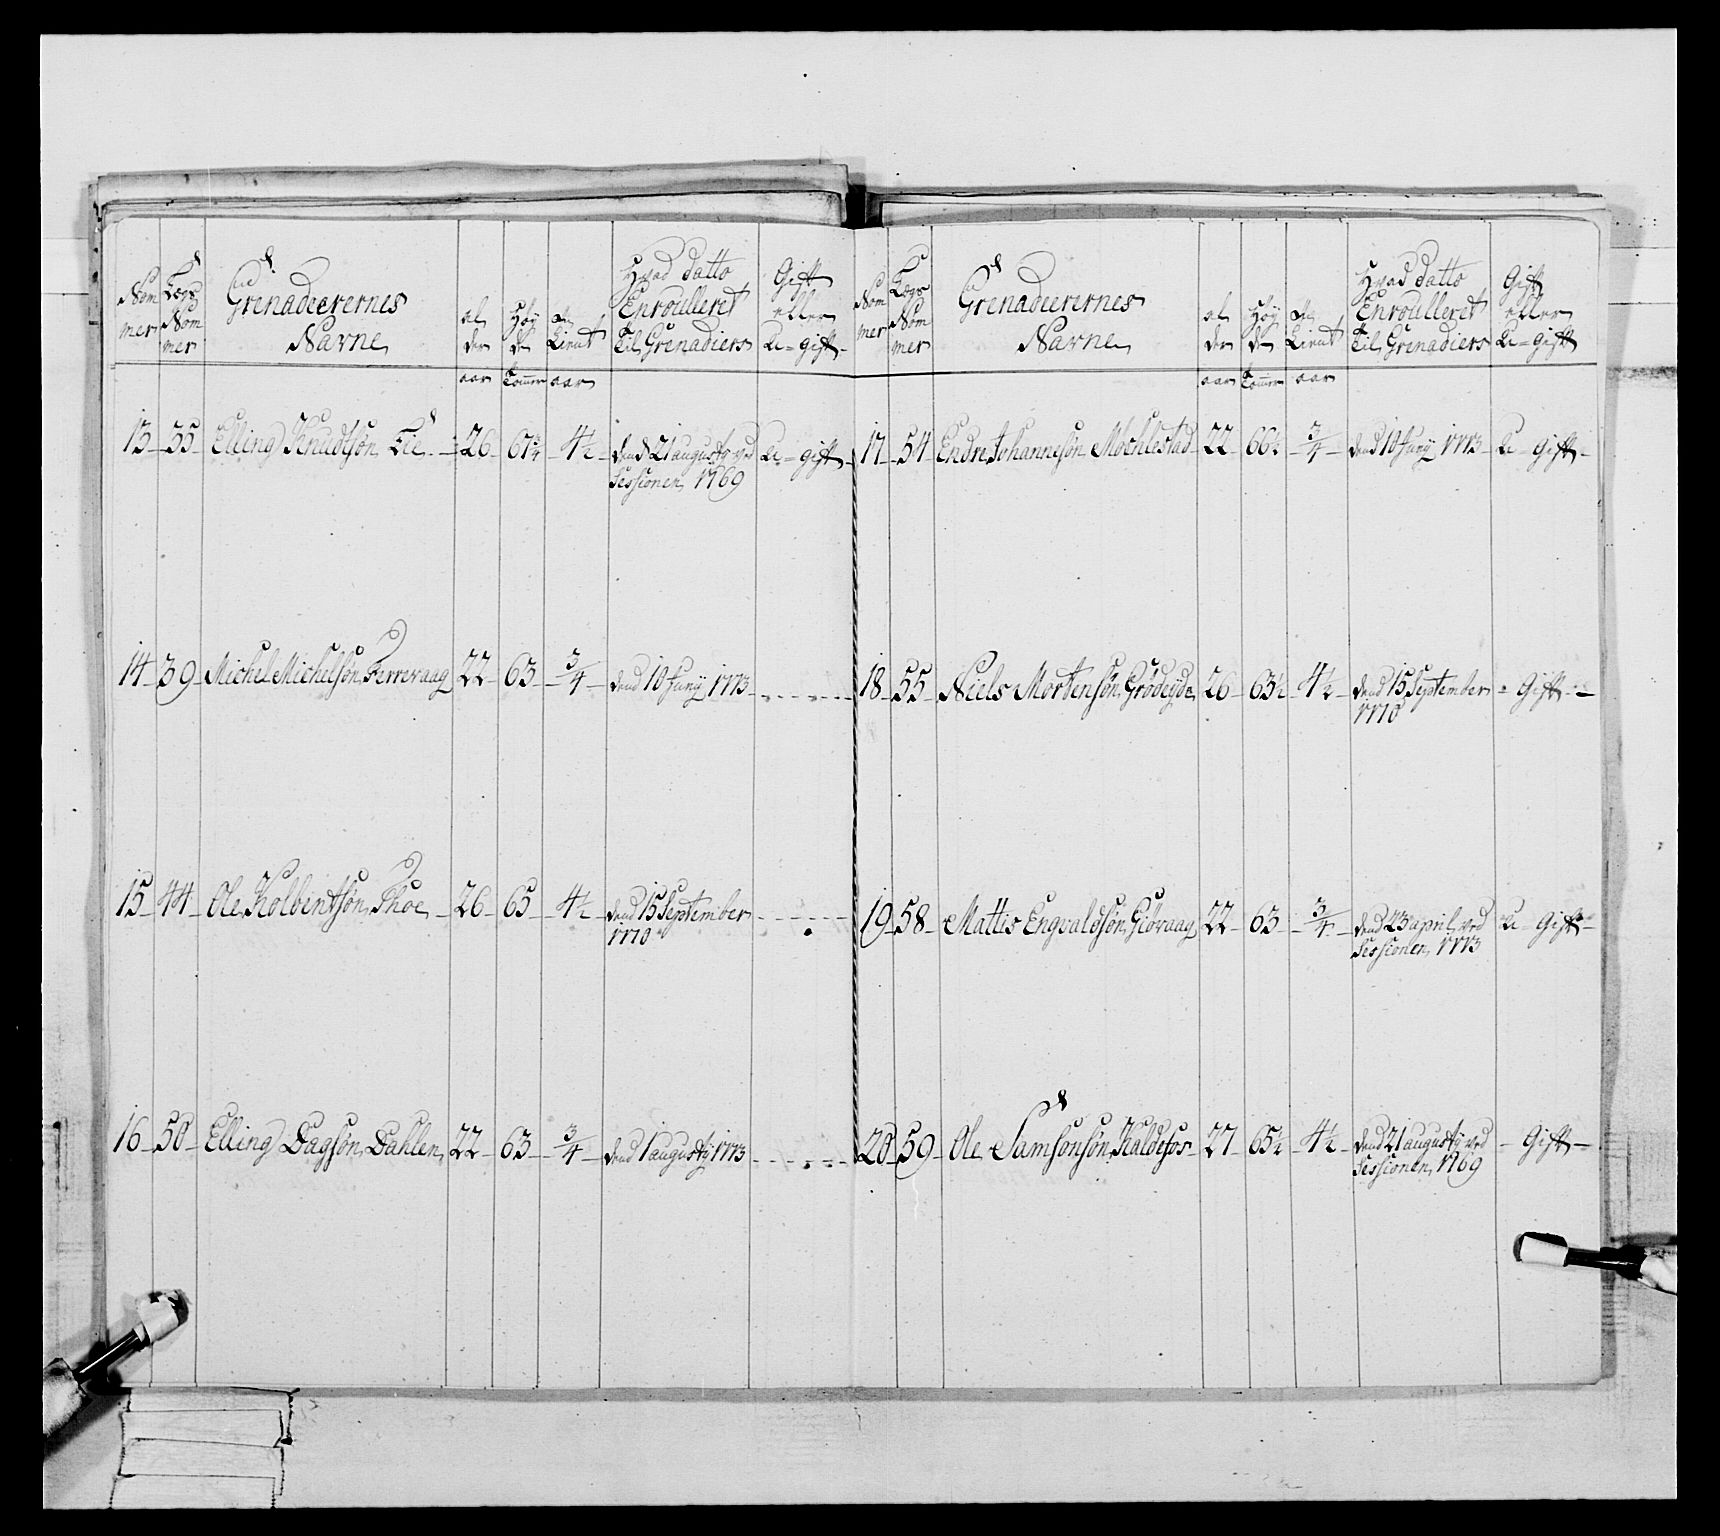 Nom mer
Lægs Nom mer
Grenadeerernes Navne
al der
Høy de
Tient
Hvad datto Enroulleret til Grenadiers
Gift eller U=gift
aar Tommer aar
13 35 Elling Knudtsøn Lie 26 67¾ 4½ dend 21 augusty ved U=gift
Sessionen 1769
14 39 Michel Michelsøn Ferreraag 22 63 3/4 dend 10 Juny 1773
15 44 Ole Kolbentsøn Thoe 26 65 4½ dend 15 September
1770
16 50 Elling Dagsøn Dahlen 22 63 3/4 dend 1 augusty 1773
Nom mer
Lægs Nom mer
Grenadeerernes Navne
al der
Høy de
Tient
Hvad datto Enroulleret til Grenadiers
Gift eller U=gift
aar Tommer aar
17 54 Endre Johannesøn Mochlestad 22 66½ 3/4 dend 10 Juny 1773 U=Gift
18 55 Niels Mortensøn Grødeyde 26 63½ 4½ dend 15 September Gift
1770
19 58 Mattis Engvaldsøn Giovaag 22 63 3/4 dend 23 april ved U=Gift
Sessionen 1773
20 59 Ole Samsonsøn Kaldefos 27 65½ 4½ dend 21 augusty ved Gift
Sessionen 1769